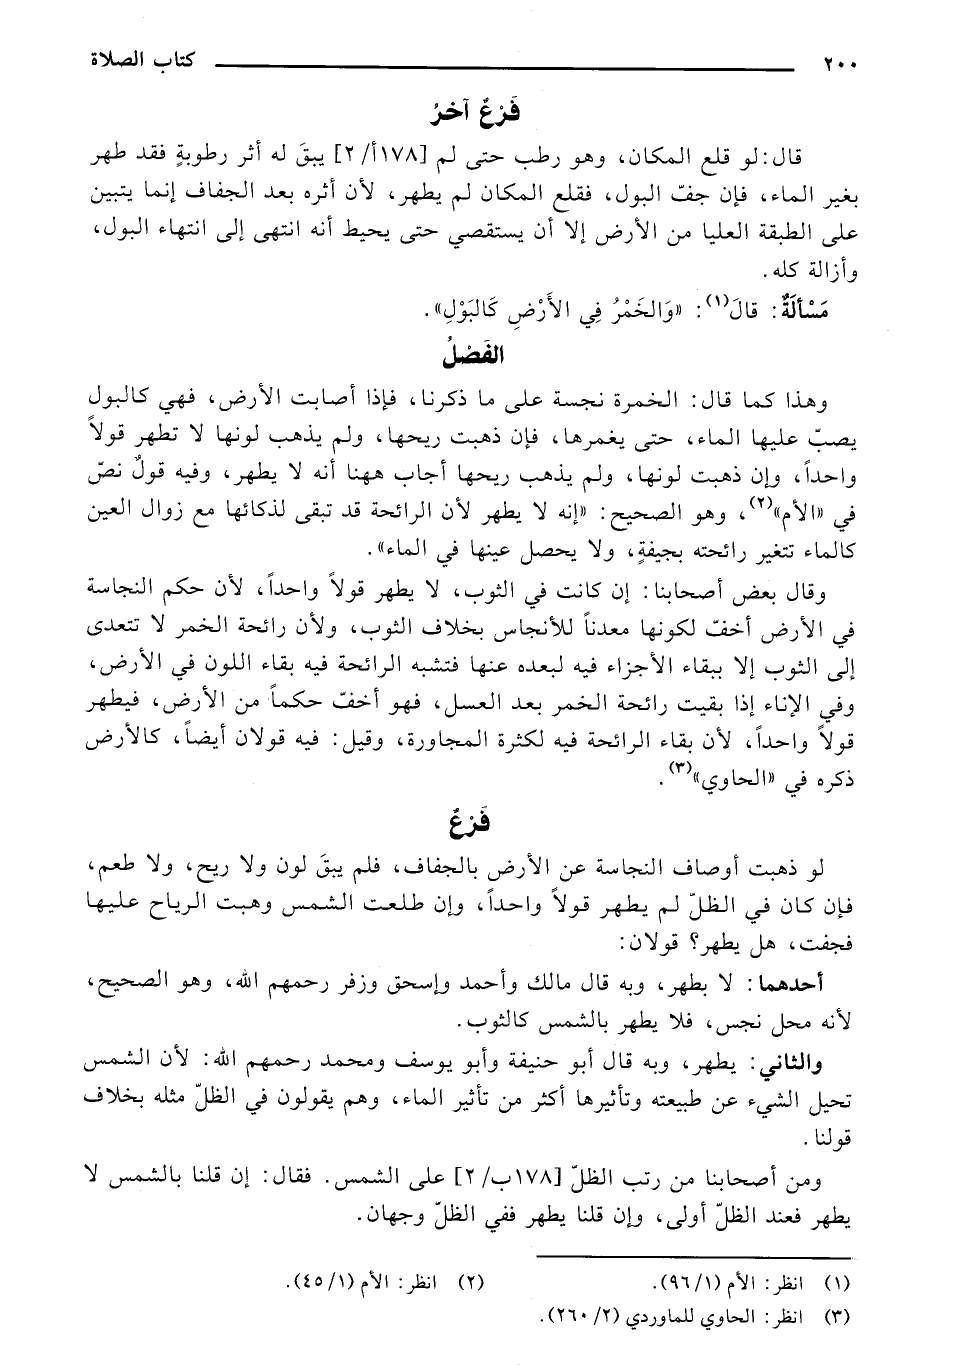 ٢٠٠ كتاب الصلاة
فَرْعٌ آخرُ
قال: لو قلع المكان، وهو رطب حتى لم [١٧٨أ/ ٢] يبقَ له أثر رطوبةٍ فقد طهر
بغير الماء، فإن جفّ البول، فقلع المكان لم يطهر، لأن أثره بعد الجفاف إنما يتبين
على الطبقة العليا من الأرض إلا أن يستقصي حتى يحيط أنه انتهى إلى انتهاء البول،
وأزالة كله.
مَسْأَلَةٌ: قالَ(١): «وَالخَمْرُ فِي الأَرْضِ كَالبَوْلِ».
الفَصْلُ
وهذا كما قال: الخمرة نجسة على ما ذكرنا، فإذا أصابت الأرض، فهي كالبول
يصبّ عليها الماء، حتى يغمرها، فإن ذهبت ريحها، ولم يذهب لونها لا تطهر قولاً
واحداً، وإن ذهبت لونها، ولم يذهب ريحها أجاب ههنا أنه لا يطهر، وفيه قولٌ نصّ
في «الأم»(٢)، وهو الصحيح: «إنه لا يطهر لأن الرائحة قد تبقى لذكائها مع زوال العين
كالماء تتغير رائحته بجيفةٍ، ولا يحصل عينها في الماء».
وقال بعض أصحابنا: إن كانت في الثوب، لا يطهر قولاً واحداً، لأن حكم النجاسة
في الأرض أخفّ لكونها معدناً للأنجاس بخلاف الثوب، ولأن رائحة الخمر لا تتعدى
إلى الثوب إلا ببقاء الأجزاء فيه لبعده عنها فتشبه الرائحة فيه بقاء اللون في الأرض،
وفي الإناء إذا بقيت رائحة الخمر بعد العسل، فهو أخفّ حكماً من الأرض، فيطهر
قولاً واحداً، لأن بقاء الرائحة فيه لكثرة المجاورة، وقيل: فيه قولان أيضاً، كالأرض
ذكره في «الحاوي»(٣).
فَرْعٌ
لو ذهبت أوصاف النجاسة عن الأرض بالجفاف، فلم يبقَ لون ولا ريح، ولا طعم،
فإن كان في الظلّ لم يطهر قولاً واحداً، وإن طلعت الشمس وهبت الرياح عليها
فجفت، هل يطهر؟ قولان:
أحدهما: لا يطهر، وبه قال مالك وأحمد وإسحق وزفر رحمهم الله، وهو الصحيح،
لأنه محل نجس، فلا يطهر بالشمس كالثوب.
والثاني: يطهر، وبه قال أبو حنيفة وأبو يوسف ومحمد رحمهم الله: لأن الشمس
تحيل الشيء عن طبيعته وتأثيرها أكثر من تأثير الماء، وهم يقولون في الظلّ مثله بخلاف
قولنا.
ومن أصحابنا من رتب الظلّ [١٧٨ب/ ٢] على الشمس. فقال: إن قلنا بالشمس لا
يطهر فعند الظلّ أولى، وإن قلنا يطهر ففي الظلّ وجهان.
(١) انظر: الأم (١/ ٩٦). (٢) انظر: الأم (١/ ٤٥).
(٣) انظر: الحاوي للماوردي (٢/ ٢٦٠).